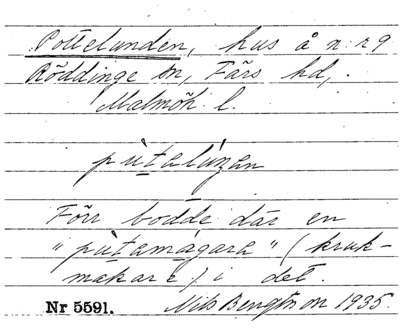 Pottelunden, hus å n:r 9
Röddinge sn, Färs hd,
Malmöh. l.
pùtalúnan
Förr bodde där en
"pùtamágara" (kruk-
makare) i det.
Nr 5591. Nils Bengtsson 1935.